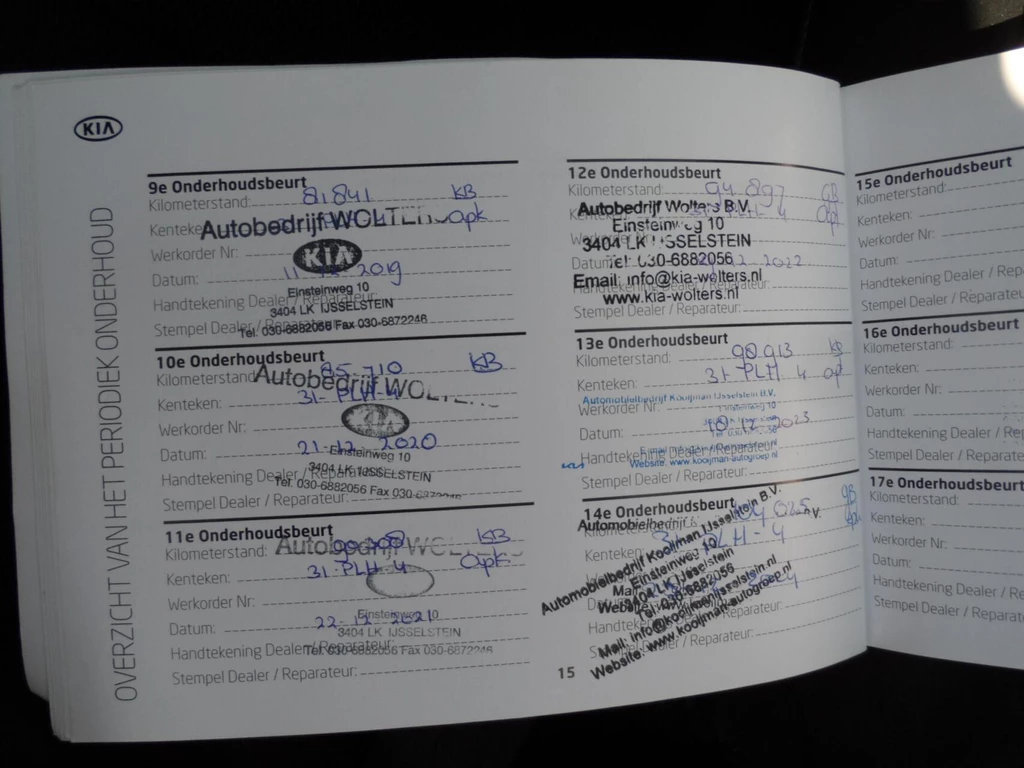 KIA
OVERZICHT VAN HET PERIODIEK ONDERHOUD
9e Onderhoudsbeurt
Kilometerstand: 81.841 KB
Kenteken: Opk
Autobedrijf WOLTERS
Werkorder Nr:
KIA
Datum: 2019
Einsteinweg 10
Handtekening Dealer / Reparateur:
3404 LK IJSSELSTEIN
Stempel Dealer / Reparateur:
Tel. 030-6882056 Fax 030-6872246
10e Onderhoudsbeurt
Kilometerstand: 85.710 KB
Autobedrijf WOLTERS
Kenteken: 31-PLH-4
Werkorder Nr:
Datum: 21-12-2020
Einsteinweg 10
3404 LK IJSSELSTEIN
Handtekening Dealer / Reparateur:
Tel. 030-6882056 Fax 030-6872246
Stempel Dealer / Reparateur:
11e Onderhoudsbeurt
Kilometerstand: KB
Autobedrijf WOLTERS
Kenteken: 31-PLH-4 Opk
Werkorder Nr:
Einsteinweg 10
Datum: 22-12-2021
3404 LK IJSSELSTEIN
Handtekening Dealer / Reparateur:
Tel. 030-6882056 Fax 030-6872246
Stempel Dealer / Reparateur:
12e Onderhoudsbeurt
Kilometerstand: 94.897 GB
Autobedrijf Wolters B.V.
Kenteken: 31-PLH-4 Opk
Einsteinweg 10
3404 LK IJSSELSTEIN
Datum: 12 2022
Tel. 030-6882056
Email: info@kia-wolters.nl
www.kia-wolters.nl
Stempel Dealer / Reparateur:
13e Onderhoudsbeurt
Kilometerstand: KB
Kenteken: 31-PLH 4 opk
Automobielbedrijf Kooijman IJsselstein B.V.
Werkorder Nr:
Einsteinweg 10
Datum: 12-2023
Handtekening Dealer / Reparateur:
Website: www.kooijman-autogroep.nl
Stempel Dealer / Reparateur:
14e Onderhoudsbeurt
Kilometerstand: GB
Kenteken: 31-PLH-4
Automobielbedrijf Kooijman IJsselstein B.V.
Einsteinweg 10
3404 LK IJsselstein
Tel. 030-6882056
Mail: info@kooijmanijsselstein.nl
Website: www.kooijman-autogroep.nl
15
15e Onderhoudsbeurt
Kilometerstand:
Kenteken:
Werkorder Nr:
Datum:
Handtekening Dealer / Repa
Stempel Dealer / Reparateu
16e Onderhoudsbeurt
Kilometerstand:
Kenteken:
Werkorder Nr:
Datum:
Handtekening Dealer / Rep
Stempel Dealer / Reparate
17e Onderhoudsbeurt
Kilometerstand:
Kenteken:
Werkorder Nr:
Datum:
Handtekening Dealer / Re
Stempel Dealer / Repara